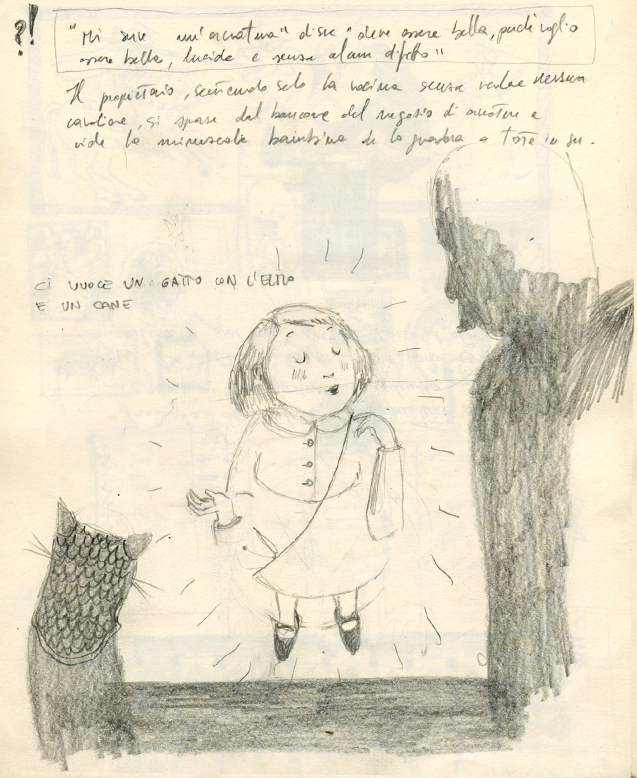 ?!
"Mi serve un'armatura" disse "deve essere bella, perché voglio
essere bella, lucida e senza alcun difetto"
Il proprietario, sentendo solo la vocina senza vedere nessun
cavaliere, si sporse dal bancone del negozio di armature e
vide la minuscola bambina che lo guardava a testa in su.
CI VUOLE UN GATTO CON L'ELMO
E UN CANE